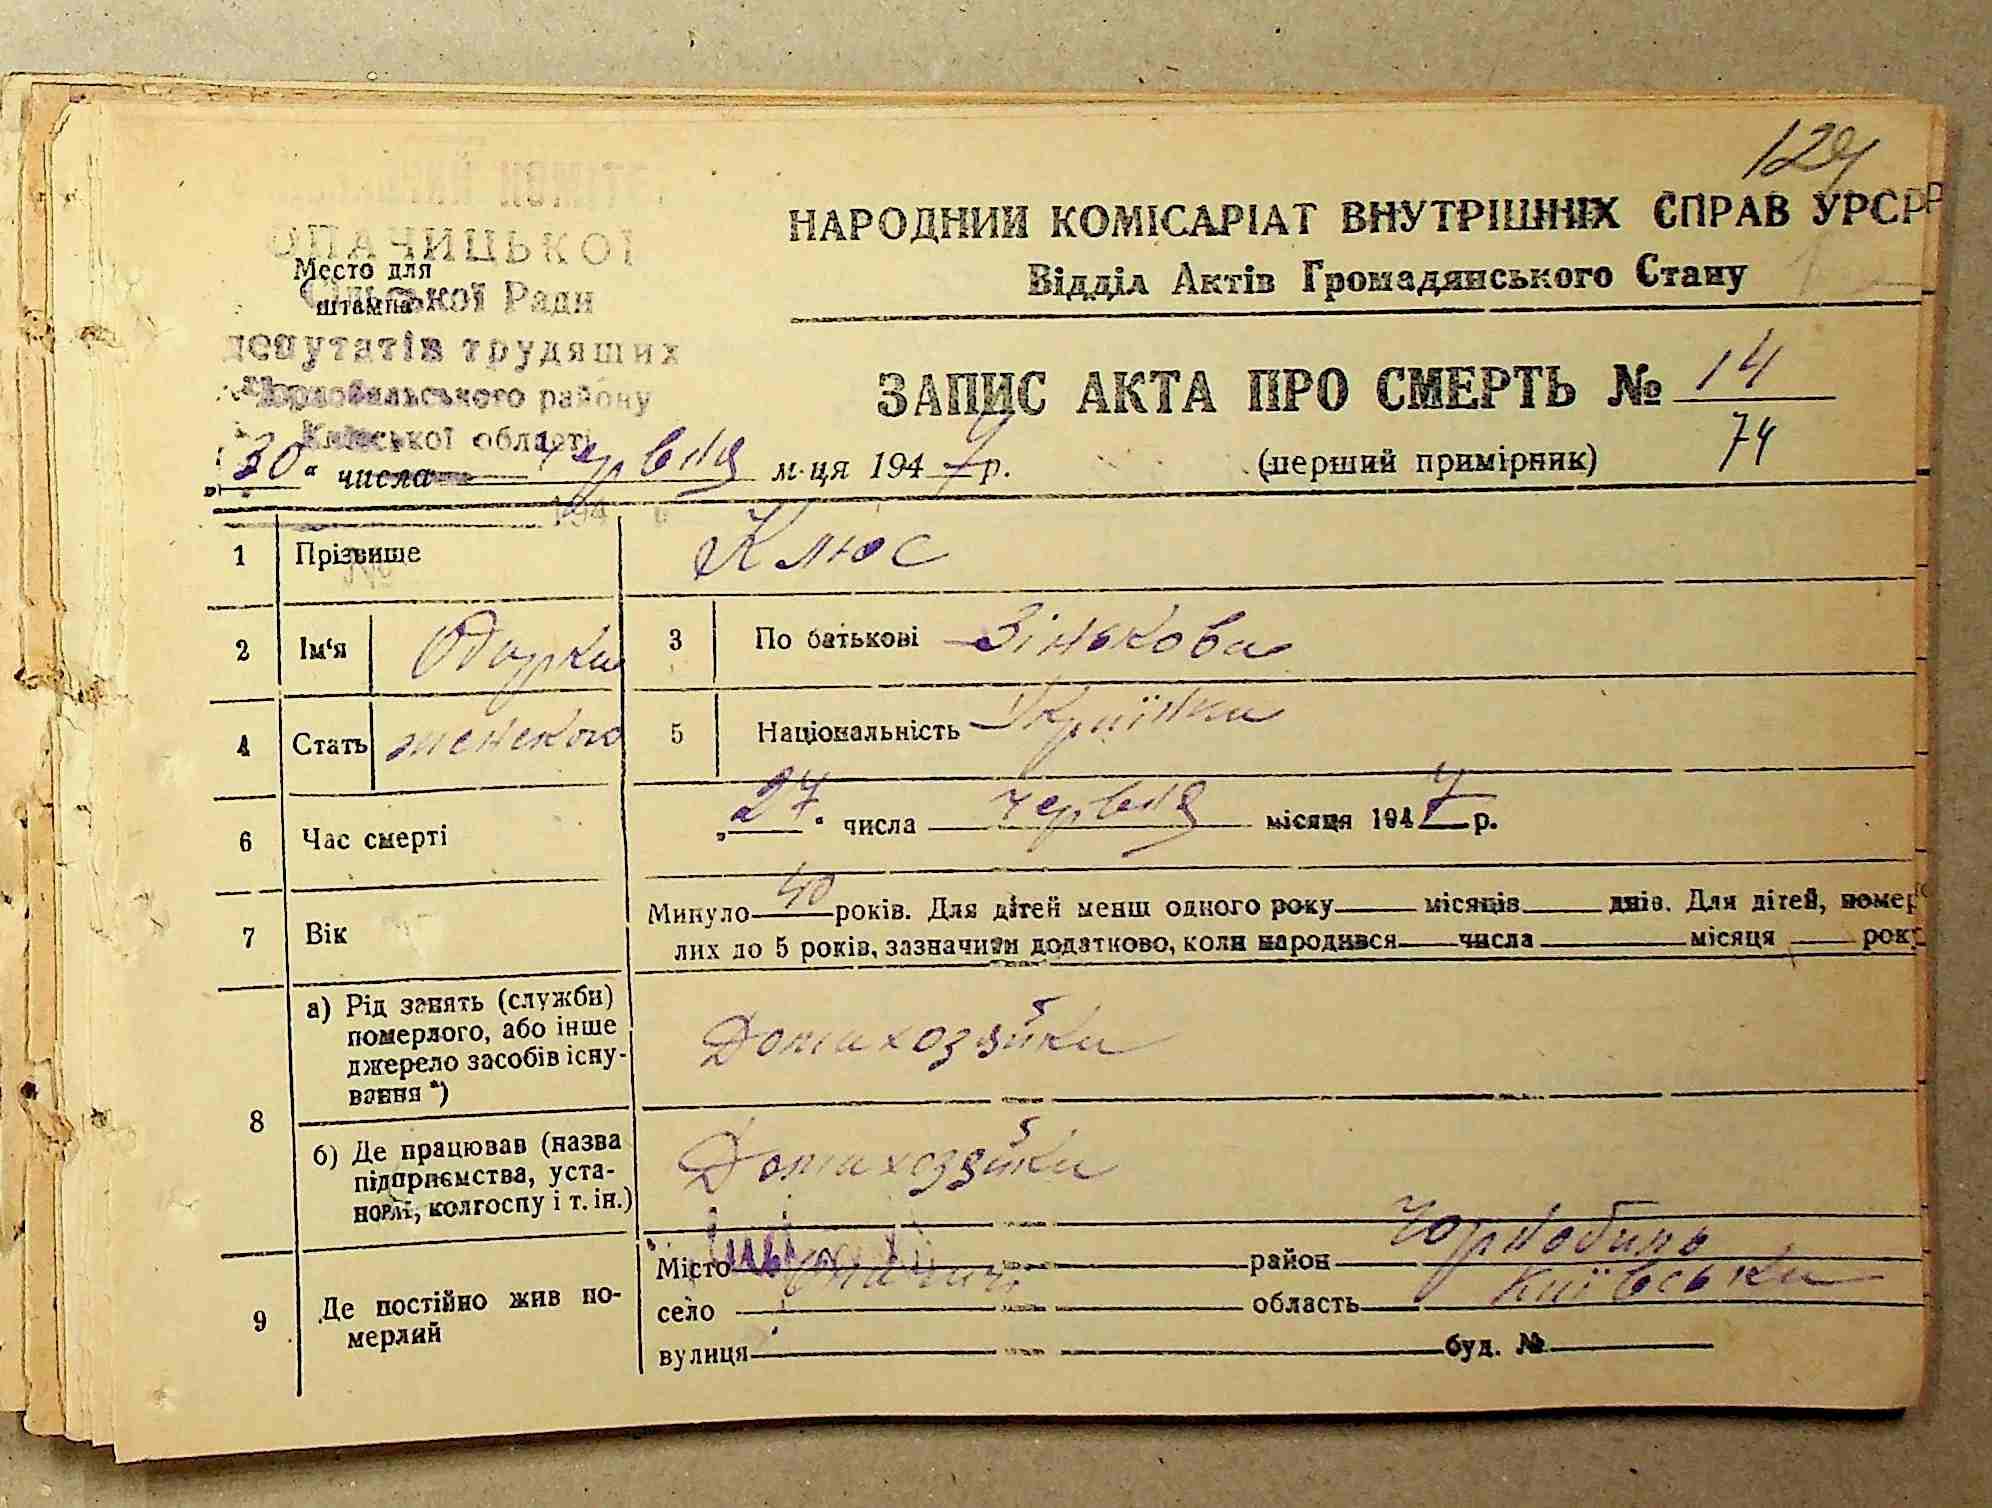 124
НАРОДНИЙ КОМІСАРІАТ ВНУТРІШНІХ СПРАВ УРСР
Відділ Актів Громадянського Стану
ОПАЧИЦЬКОЇ
Место для штампа
Сільської Ради
депутатів трудящих
Чорнобильського району
Київської області
194
ЗАПИС АКТА ПРО СМЕРТЬ № 14
74
(перший примірник)
„30“ числа червня м-ця 1947 р.
1 Прізвище Клюс
2 Ім'я Одарка 3 По батькові Зінькова
4 Стать женского 5 Національність Українка
6 Час смерті „27“ числа червня місяця 1947 р.
7 Вік Минуло 40 років. Для дітей менш одного року місяців днів. Для дітей, помер
лих до 5 років, зазначити додатково, коли народився числа місяця року
8 а) Рід занять (служби)
померлого, або інше
джерело засобів існу-
вання *)
Домахозяйка
б) Де працював (назва
підприємства, уста-
нови, колгоспу і т. ін.)
Домахозяйка
9 Де постійно жив по-
мерлий
Місто Опачичі район Чорнобиль
село область Київська
вулиця буд. №